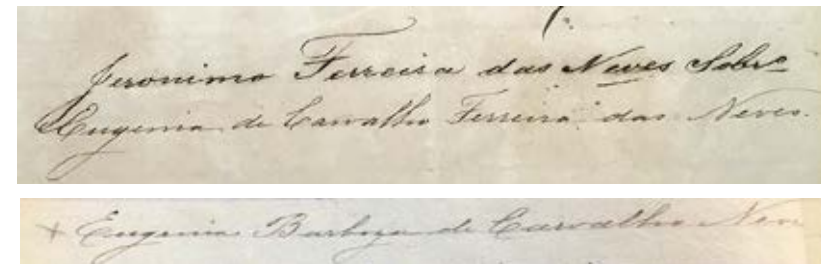 Jeronimo Ferreira das Neves Sobrº
Eugenia de Carvalho Ferreira das Neves.
+ Eugenia Barboza de Carvalho Neve